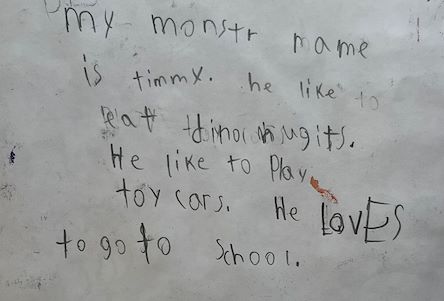 my monstr name
is timmy. he like to
eat dinonugits.
He like to Play
toy cars. He LovES
to go to school.